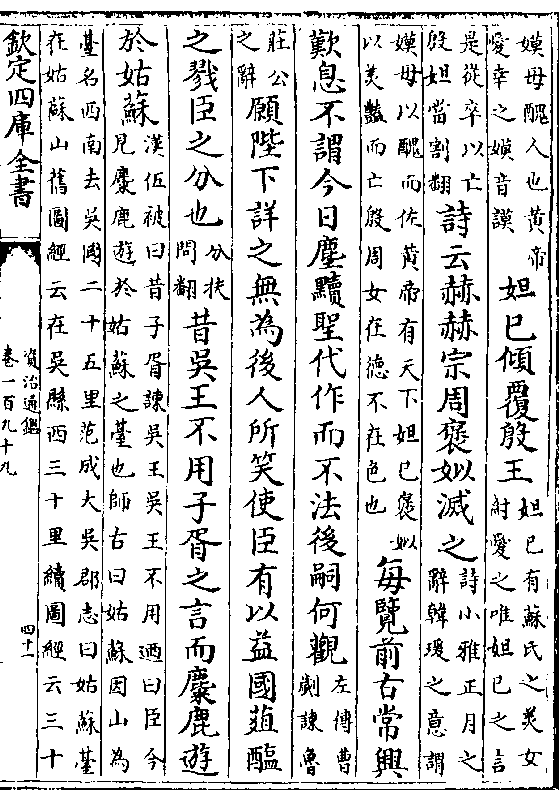 嫫母醜人也黃帝
愛幸之嫫音謨
妲已傾覆殷王
妲已有蘇氏之美女
紂愛之唯妲已之言
是從卒以亡
殷妲當割翻
詩云赫赫宗周褒姒滅之
詩小雅正月之
辭韓瑗之意謂
嫫母以醜而佐黃帝有天下妲已褒姒
以美豔而亡殷周女在德不在色也
每覽前古常興
歎息不謂今日塵黷聖代作而不法後嗣何觀
左傳曹
劌諫魯
莊公
之辭
願陛下詳之無為後人所笑使臣有以益國葅醢
之戮臣之分也
分扶
問翻
昔吳王不用子胥之言而麋鹿遊
於姑蘇
漢伍被曰昔子胥諫吳王吳王不用迺曰臣今
見麋鹿遊於姑蘇之臺也師古曰姑蘇因山為
臺名西南去吳國二十五里范成大吳郡志曰姑蘇臺
在姑蘇山舊圖經云在吳縣西三十里續圖經云三十
欽定四庫全書
資治通鑑
卷一百九十九
四十一